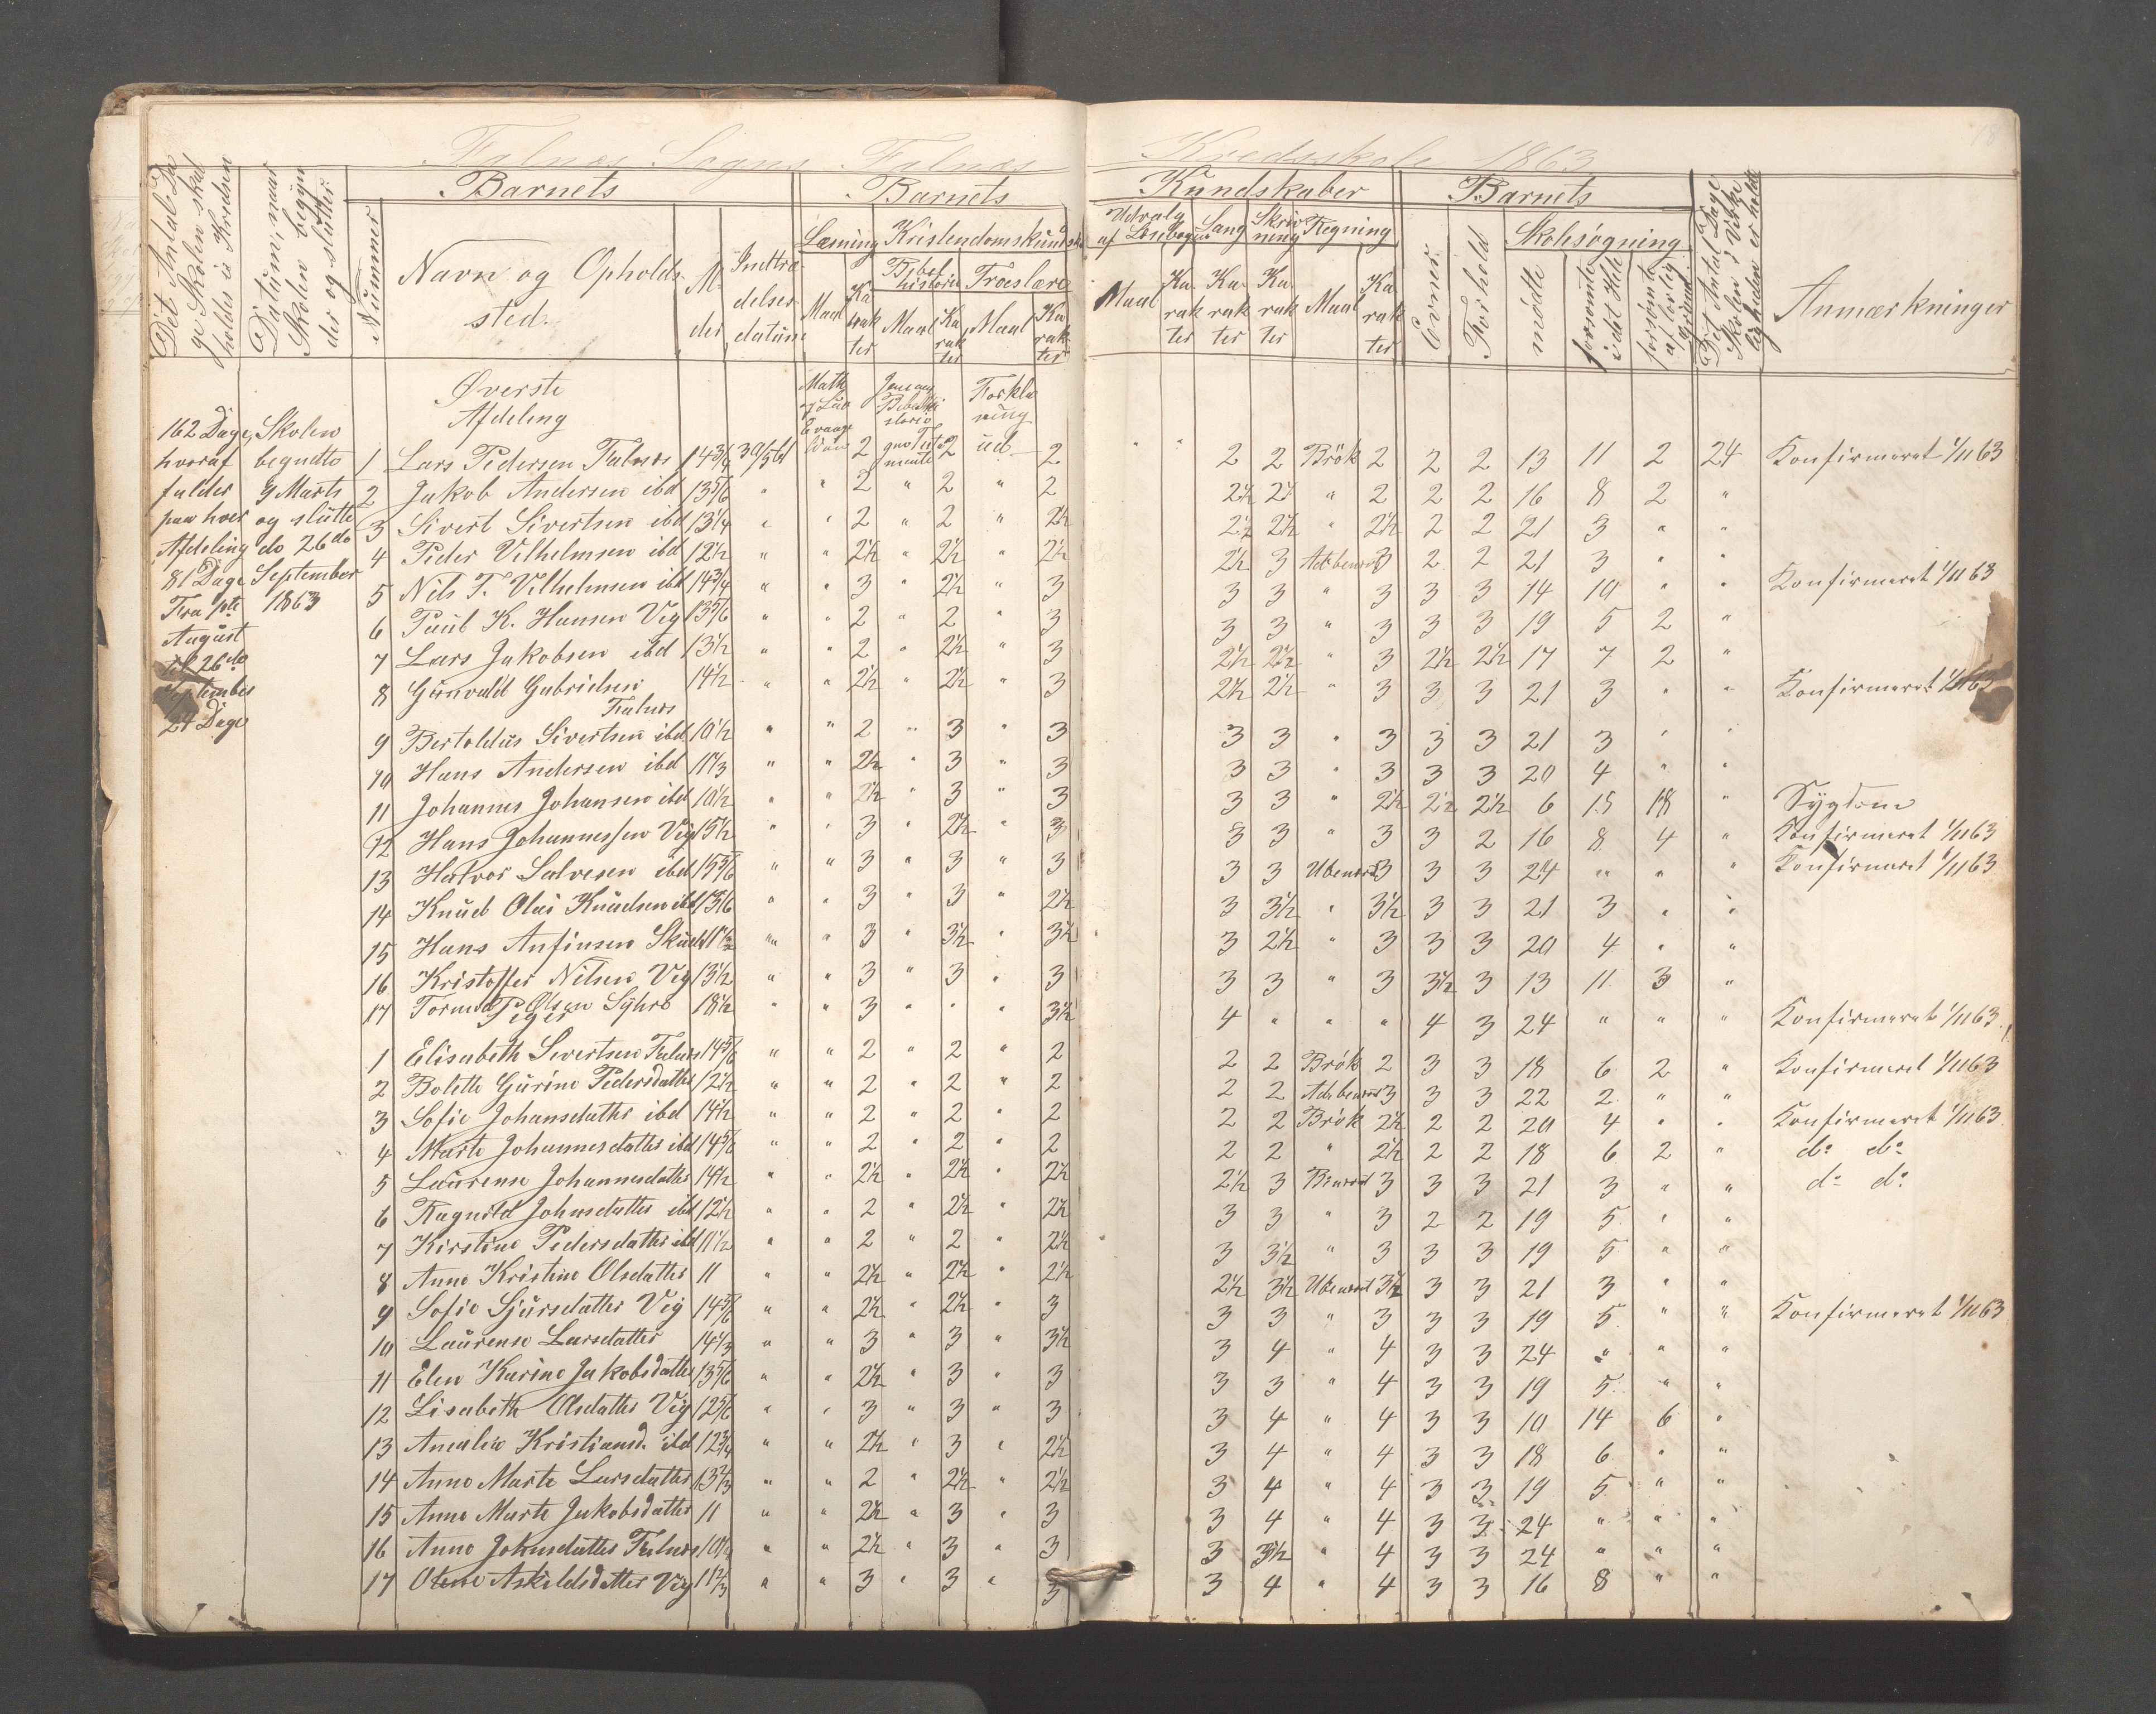 Falnes Sogns Falnes Kredsskole 1863
Det Antal Da
ge Skolen skal
holdes i Kredsen
Datum, naar
Skolen begyn
der og slutter
Nummer
Barnets
Navn og Opholds
sted.
Al
der
Indtræ
delses
datum
Barnets Kundskaber
Læsning
Maal
Ka
rak
ter
Kristendomskundskab
Bibel
historie
Maal
Ka
rak
ter
Troeslære
Maal
Ka
rak
ter
Udvalg
af Læsebogen
Maal
Ka
rak
ter
Sang
Ka
rak
ter
Skriv
ning
Ka
rak
ter
Regning
Maal
Ka
rak
ter
Barnets
Evner
Forhold
Skolesøgning
mødte
forsømte
i det Hele
forsømte
af lovlig
Grund
Det Antal Dage
Skolen i Virke
ligheden er holdt
Anmærkninger
162 Dage,
hvoraf
falder
paa hver
Afdeling
81 Dage
Fra 1ste
August
til 26de
September
24 Dage
Skolen
begyndte
9 Marts
og slutte
de 26de
September
1863
Øverste
Afdeling
1 Lars Pedersen Falnes 14 3/4 30/5 61 2 2 ud 2 " " 2 2 Brök 2 2 2 13 11 2 24 Konfirmeret 1/11 63
2 Jakob Andersen ibd 13 5/6 " " 2 " 2 " 2 2½ 2½ " 2 2 2 16 8 2 "
3 Sivert Sivertsen ibd 13 1/4 " " 2 " 2 " 2½ 2½ 2½ " 2½ 2 2 21 3 " "
4 Peder Vilhelmsen ibd 12½ " " 2½ " 2½ " 2½ 2½ 3 3 2 2 21 3 " "
5 Nils T. Vilhelmsen ibd 14 3/4 " " 3 " 2½ " 3 3 3 " 3 3 3 14 10 " " Konfirmeret 1/11 63
6 Paul K. Hansen Veg 13 5/6 " " 2 " 2 " 3 3 3 " 3 3 3 19 5 2 "
7 Lars Jakobsen ibd 13½ " " 2 " 2½ " 3 2½ 2½ " 3 2½ 2½ 17 7 2 "
8 Gunvald Gabrielsen Falnes 14½ " " 2½ " 2½ " 3 2½ 2½ " 3 3 3 21 3 " " Konfirmeret 1/11 63
9 Bertoldus Sivertsen ibd 10½ " " 2 " 3 " 3 3 3 " 3 3 3 21 3 " "
10 Hans Andersen ibd 11 1/3 " " 2½ " 3 " 3 3 3 " 3 3 3 20 4 " "
11 Johannes Johansen ibd 10½ " " 2½ " 3 " 3 3 3 " 2½ 2½ 2½ 6 15 18 " Sygdom
12 Hans Johannessen Veg 15½ " " 3 " 2½ " 3 3 3 " 3 3 2 16 8 4 " Konfirmeret 1/11 63
13 Halvor Salvesen ibd 15 5/6 " " 3 " 3 " 3 3 3 Ubenævnt 3 3 3 24 " " " Konfirmeret 1/11 63
14 Knud Olai Knudsen ibd 13 1/6 " " 3 " 3 " 2½ 3 3½ " 3½ 3 3 21 3 " "
15 Hans Anfinsen 11½ " " 3 " 3½ " 3½ 3 2½ " 3 3 3 20 4 " "
16 Kristoffer Nilsen Veg 13½ " " 3 " 3 " 3 3 3 " 3 3½ 3 13 11 3 "
17 Tormod Olsen Syhre 18½ " " 3 " " " 3½ 4 " " " 4 3 24 " " " Konfirmeret 1/11 63
Piger
1 Elisabeth Sivertsen Falnes 14 5/6 " " 2 " 2 " 2 2 2 Brök 2 3 3 18 6 2 " Konfirmeret 1/11 63
2 Bolette Gurine Pedersdatter 12½ " " 2 " 2 " 2 2 2 3 3 3 22 2 " "
3 Sofie Johansdatter ibd 14½ " " 2 " 2 " 2 2 2 Brök 2½ 2 2 20 4 " " Konfirmeret 1/11 63
4 Marte Johannesdatter ibd 14 5/6 " " 2 " 2 " 2 2 2 " 2½ 2 2 18 6 2 " do do
5 Laurense Johannesdatter 14½ " " 2½ " 2½ " 2½ 2½ 3 Benævnt 3 3 3 21 3 " " do do
6 Ragnild Johnsdatter ibd 12½ " " 2 " 2½ " 2½ 3 3 " 3 2 2 19 5 " "
7 Kirstine Pedersdatter ibd 11½ " " 2 " 2 " 2½ 3 3½ " 3 3 3 19 5 " "
8 Anne Kristine Olsdatter 11 " " 2½ " 2½ " 2½ 2½ 3½ Ubenævnt 3½ 3 3 21 3 " "
9 Sofie Sjursdatter Veg 14 5/6 " " 2½ " 2½ " 3 3 3 " 3 3 3 19 5 " " Konfirmeret 1/11 63
10 Laurense Larsdatter 14 1/3 " " 3 " 3 " 3½ 3 4 " 4 3 3 24 " " "
11 Elen Karine Jakobsdatter 13 5/6 " " 2½ " 3 " 3 3 3 " 4 3 3 19 5 " "
12 Lisabeth Olsdatter Veg 12 5/6 " " 3 " 3 " 3 3 4 " 4 3 3 10 14 6 "
13 Amalie Kristiansd. ibd 12 3/4 " " 2½ " 3 " 2½ 3 4 " 4 3 3 18 6 " "
14 Anne Marte Larsdatter 13 2/3 " " 2 " 2½ " 2½ 3 4 " 4 3 3 19 5 " "
15 Anne Marte Jakobsdatter 11 " " 2½ " 3 " 3 3 4 " 4 3 3 24 " " "
16 Anne Johnsdatter Falnes " " 2½ " 3 " 3 3 3½ " 4 3 3 24 " " "
17 Olene Askildsdatter Veg 11 2/3 " " 3 " 3 " 3 3 4 " 4 3 3 16 8 " "